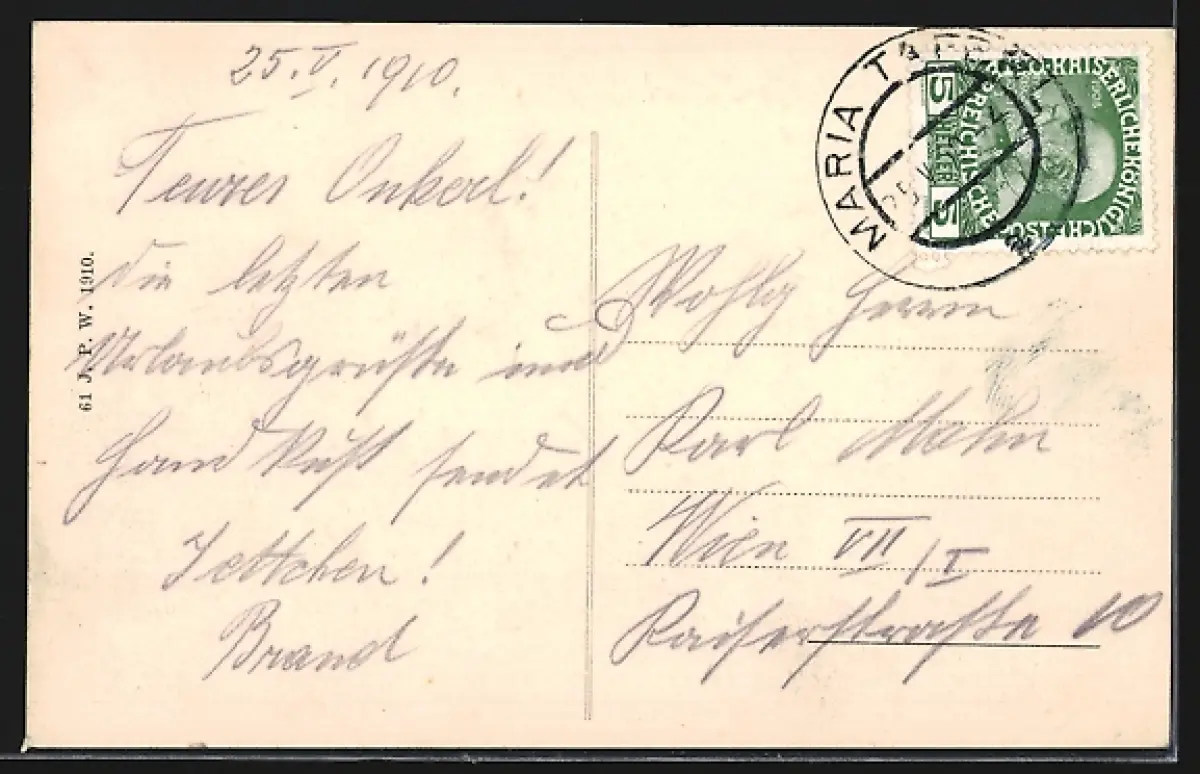 25.V.1910.
Teures Onkerl!
die letzten
Urlaubsgrüße und
Handkuß sendet
Jettchen!
Brand
61 J. P. W. 1910.
MARIA TAFERL
KAISERLICHEKÖNIGLICHE
ÖSTERREICHISCHE POST
5 HELLER 5
1908
Wohlg Herrn
Karl
Wien VII/I
Kaiserstraße 10